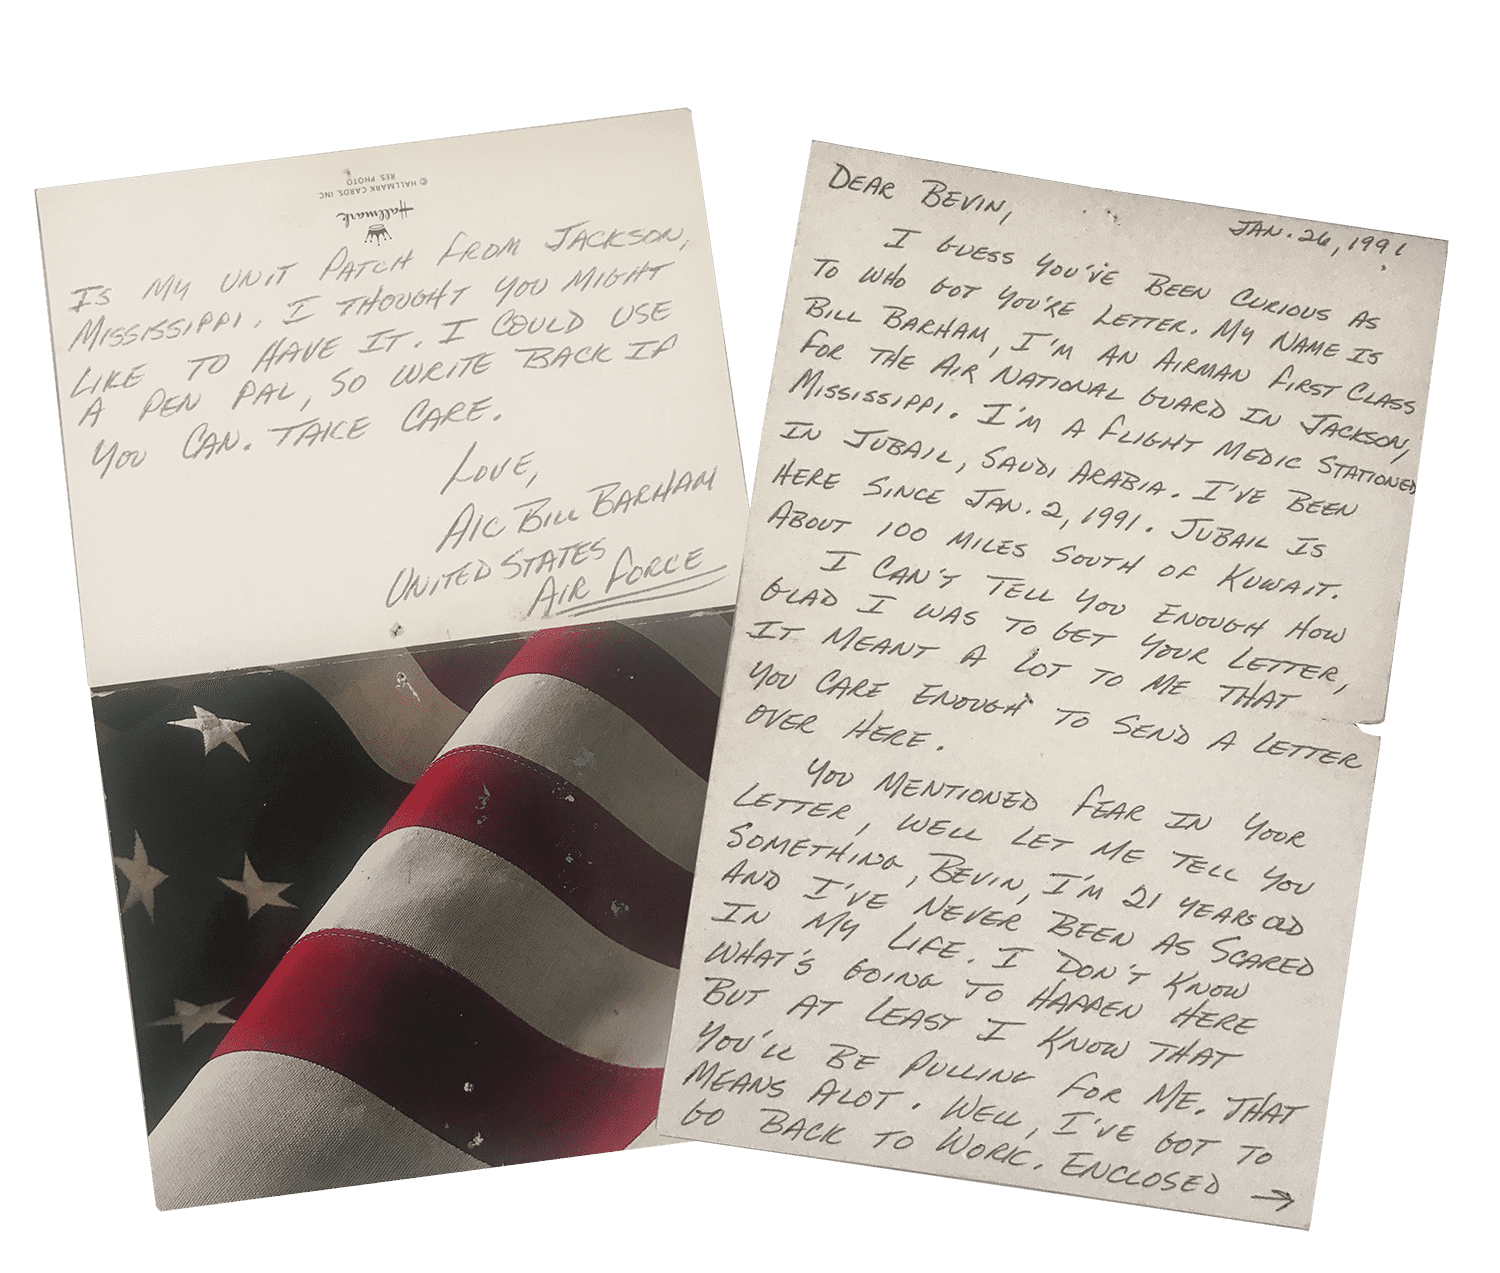 DEAR BEVIN,
JAN. 26, 1991
I GUESS YOU'VE BEEN CURIOUS AS
TO WHO GOT YOU'RE LETTER. MY NAME IS
BILL BARHAM, I'M AN AIRMAN FIRST CLASS
FOR THE AIR NATIONAL GUARD IN JACKSON,
MISSISSIPPI. I'M A FLIGHT MEDIC STATIONED
IN JUBAIL, SAUDI ARABIA. I'VE BEEN
HERE SINCE JAN. 2, 1991. JUBAIL IS
ABOUT 100 MILES SOUTH OF KUWAIT.
I CAN'T TELL YOU ENOUGH HOW
GLAD I WAS TO GET YOUR LETTER,
IT MEANT A LOT TO ME THAT
YOU CARE ENOUGH TO SEND A LETTER
OVER HERE.
YOU MENTIONED FEAR IN YOUR
LETTER, WELL LET ME TELL YOU
SOMETHING, BEVIN, I'M 21 YEARS OLD
AND I'VE NEVER BEEN AS SCARED
IN MY LIFE. I DON'T KNOW
WHAT'S GOING TO HAPPEN HERE
BUT AT LEAST I KNOW THAT
YOU'LL BE PULLING FOR ME. THAT
MEANS ALOT. WELL, I'VE GOT TO
GO BACK TO WORK. ENCLOSED →
IS MY UNIT PATCH FROM JACKSON,
MISSISSIPPI. I THOUGHT YOU MIGHT
LIKE TO HAVE IT. I COULD USE
A PEN PAL, SO WRITE BACK IF
YOU CAN. TAKE CARE.
LOVE,
A1C BILL BARHAM
UNITED STATES
AIR FORCE
Hallmark
© HALLMARK CARDS, INC.
RES. PHOTO